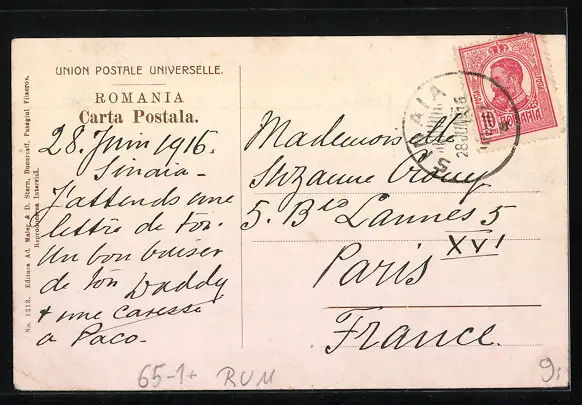 UNION POSTALE UNIVERSELLE.
ROMANIA
Carta Postala.
28. Juin 1916.
Sinaia -
J'attends une
lettre de toi.
Un bon baiser
de ton Daddy
+ une caresse
a Paco -
Mademoiselle
Suzanne
5. Bld Lannes 5
XVI
Paris
France.
SINAIA
28 JUN 916
10
ROMANIA
No. 1213. Editura Ad. Maier & D. Stern, Bucuresti, Pasagiul Vilacros.
Reproducerea interzisă.
65-1+ RUM
9,